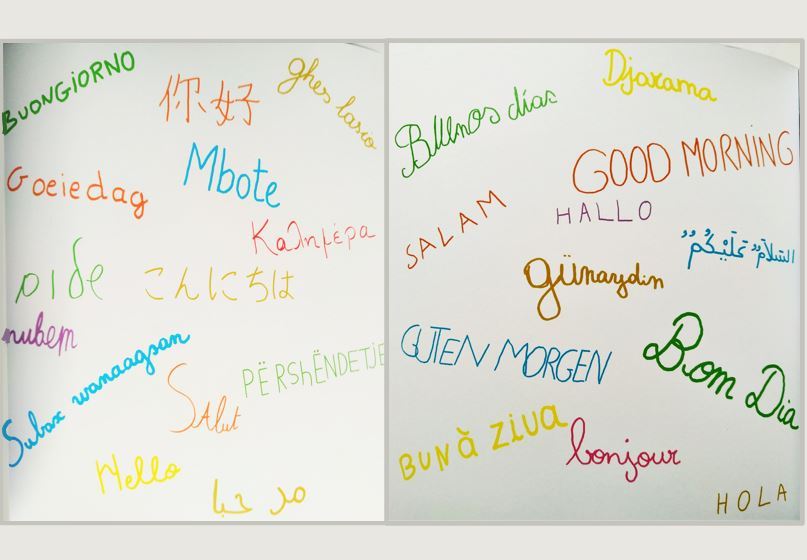 BUONGiORNO
你好
ghes lasio
Goeiedag
Mbote
Καλημέρα
こんにちは
nubem
Subax wanaagsan
PËRShËNDETJE
SAlut
Hello
مر حبا
Buenos días
Djarama
GOOD MORNING
SALAM
HALLO
السَّلاَمُ عَلَيْكُمْ
günaydin
GUTEN MORGEN
Bom Dia
BUNĂ ZIUA
bonjour
HOLA